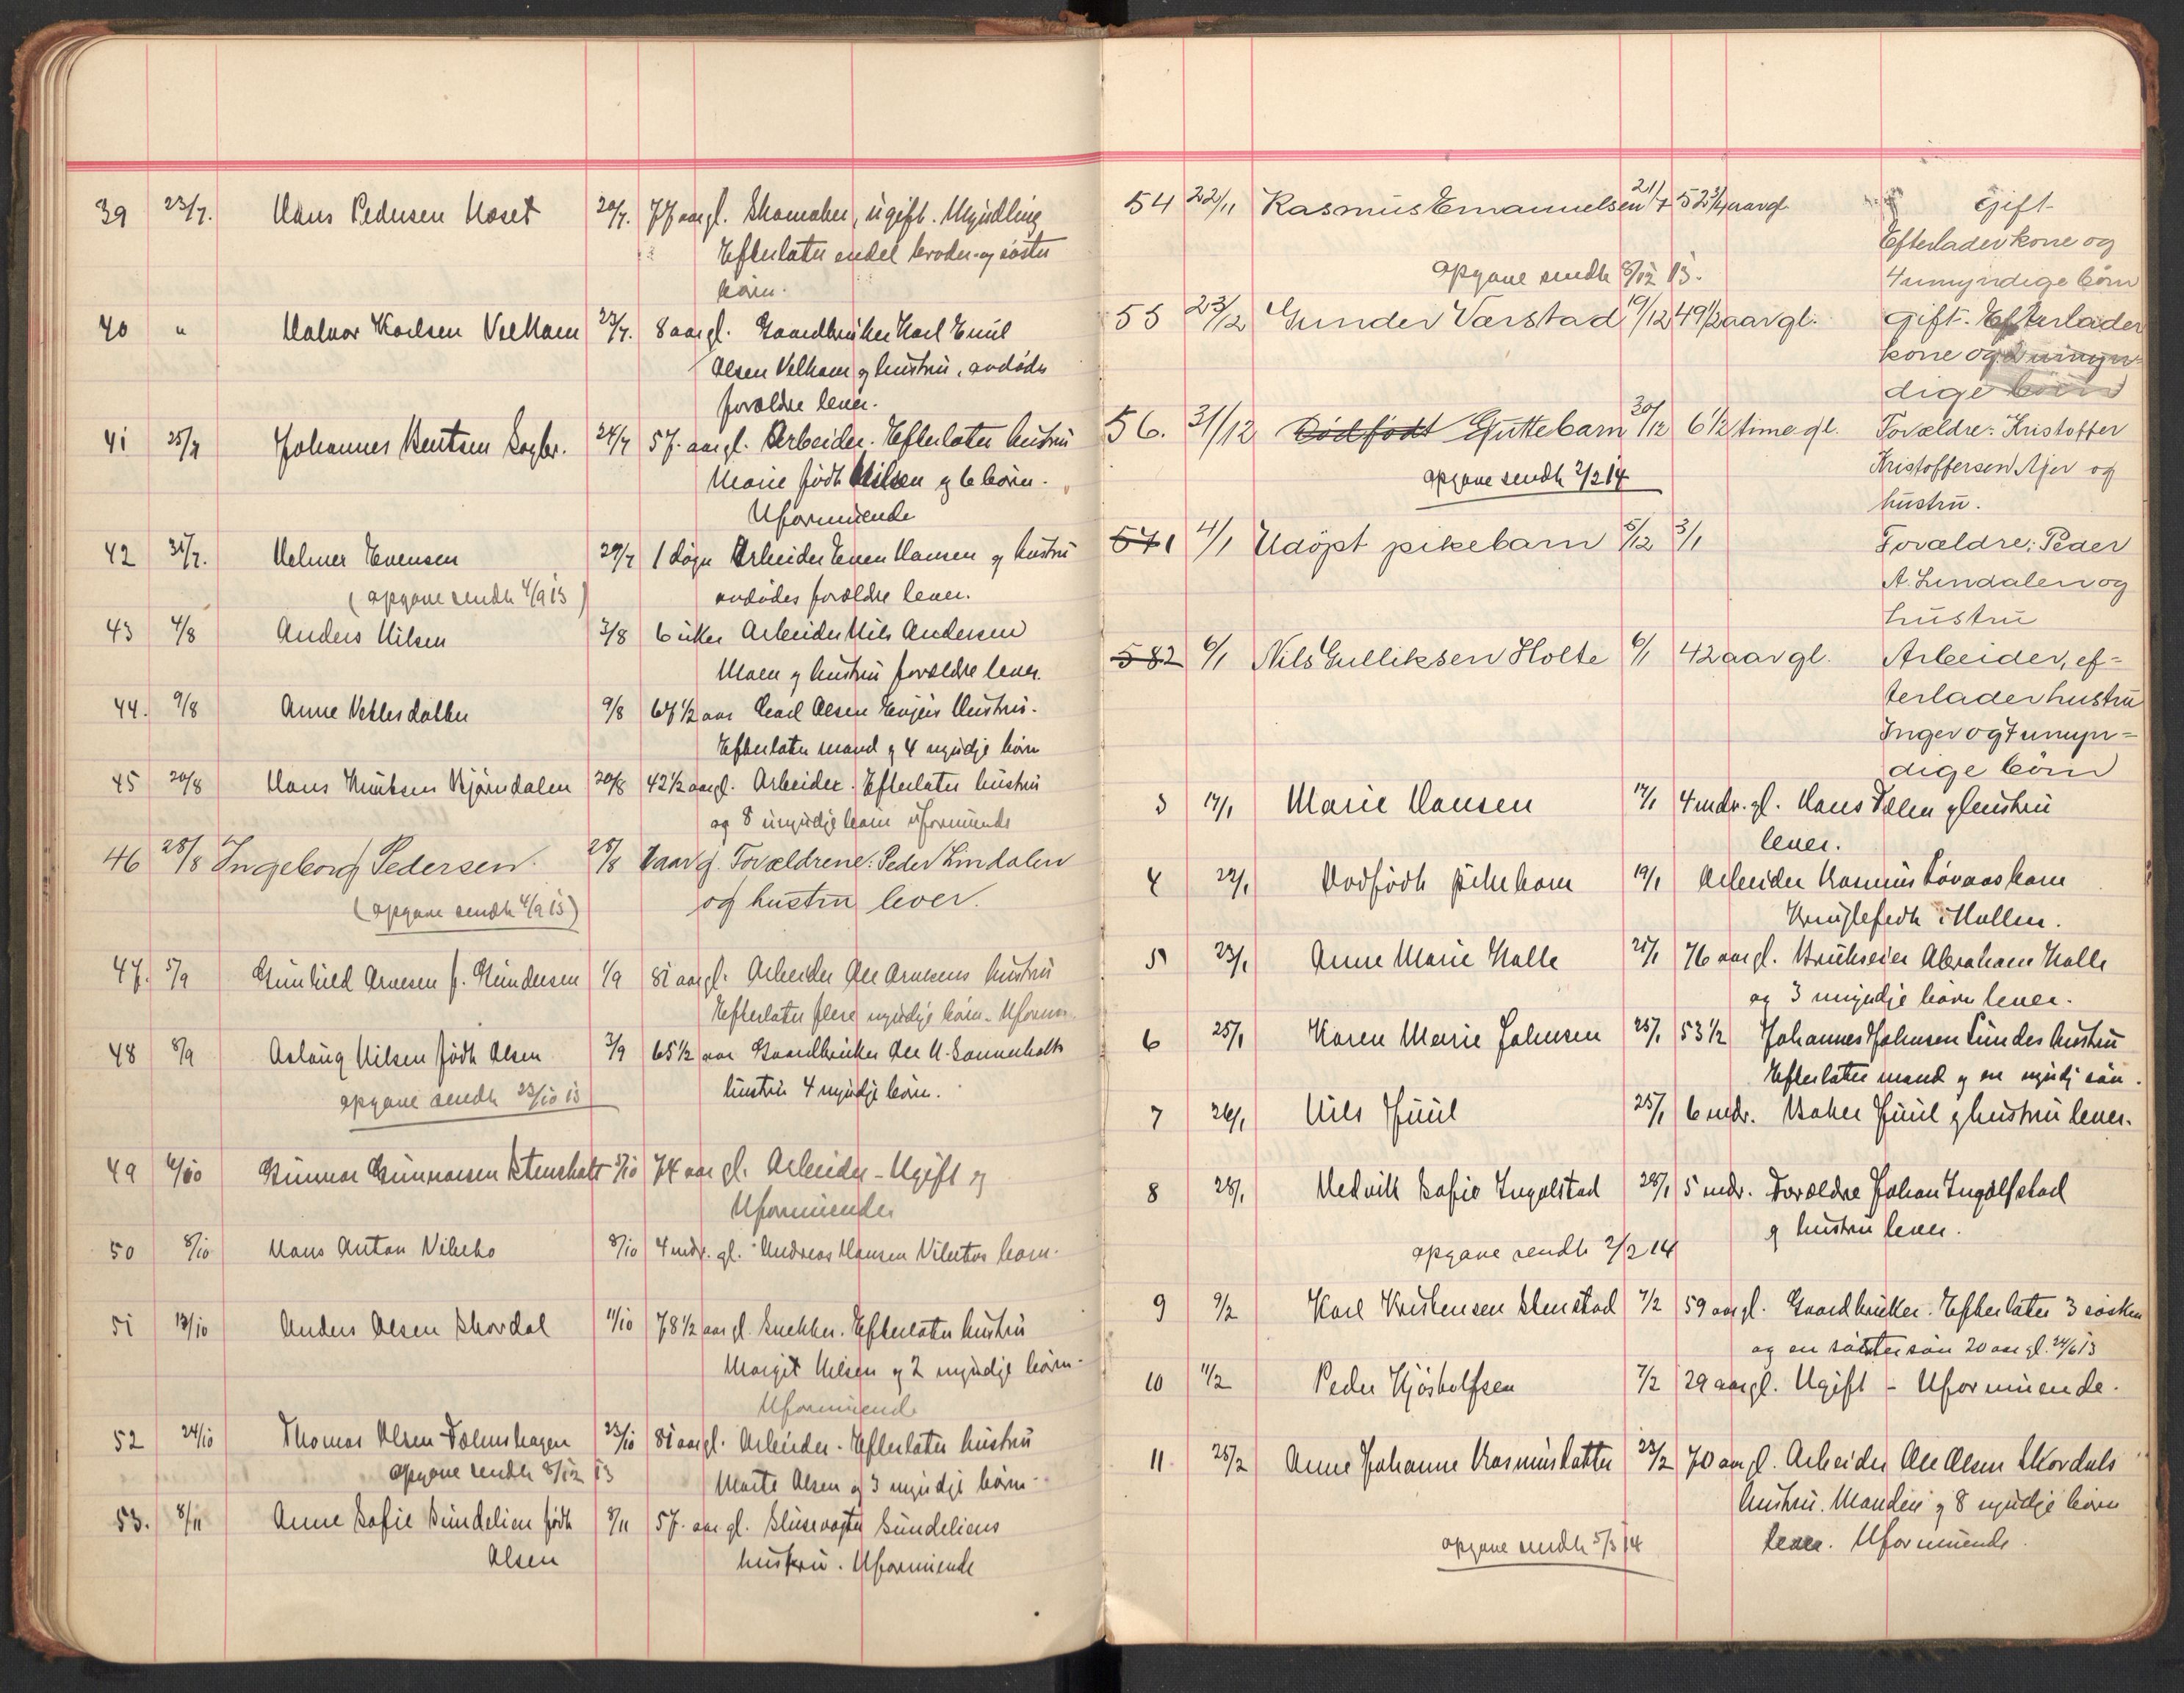 39 23/7. Hans Pedersen Moset 20/7. 77 aar gl. Skomaker, ugift. Myndling
Efterlater endel broder- og søster
børn.
40 " Halvor Karlsen Velkam 23/7. 8 aar gl. Gaardbruker Karl Emil
Olsen Velkam og hustru, avdødes
forældre lever.
41 25/7 Johannes Bentsen 24/7 57. aar gl. Arbeider. Efterlater hustru
Marie født Nilsen og 6 børn.
Uformuende
42 31/7. Helmer Evensen 29/7 1 døgn Arbeider Even Hansen og hustru
(opgave sendt 4/9 13) avdødes forældre lever.
43 4/8 Anders Nilsen 3/8 6 uker Arbeider Nils Andersen
Moen og hustru forældre lever.
44. 9/8 Anne Vetlesdatter 9/8 67 1/2 aar Carl Olsen hustru.
Efterlater mand og 4 myndje børn
45 20/8 Hans Knutsen Bjørndalen 20/8 42 1/2 aar gl. Arbeider. Efterlater hustru
og 8 umyndje børn uformuende
46 28/8 Ingeborg Pedersen. 25/8 1 aar g. Forældrene: Peder Lindalen
(opgave sendt 4/9 13) og hustru lever.
47. 5/9 Gunhild Arnesen f. Gundersen 1/9 81 aar gl. Arbeider Ole Arnesens hustru
Efterlater flere myndje børn. Uformu.
48 8/9 Aslaug Nilsen født Olsen 3/9 65 1/2 aar Gaardbruker Ole N. Sannerholts
opgave sendt 23/10 13 hustru 4 myndje børn.
49 6/10 Gunnar Gunnarsen Stensholt 5/10 74 aar gl. Arbeider - Ugift og
Uformuende
50 8/10 Hans Anton Vibeto 8/10 4 mdr. gl. Andreas Hansen Vibetos barn.
51 13/10 Anders Olsen Skordal 11/10 78 1/2 aar gl. Snekker. Efterlater hustru
Margit Nilsen og 2 myndje børn.
Uformuende
52 24/10 Thomas Olsen Holmshagen 23/10 81 aar gl. Arbeider. Efterlater hustru
opgave sendt 8/12 13 Marte Olsen og 3 myndje børn.
53. 8/11 Anne Sofie Sundelien født 8/11 57. aar gl. Slusevogter Sundeliens
Olsen hustru. Uformuende
54 22/11 Rasmus Emanuelsen 21/7 52 3/4 aar gl Gift
Efterlader kone og
opgave sendt 8/12 13. 4 umyndige børn
55 23/12 Gunder Værstad 19/12 49 1/2 aar gl. Gift. Efterlader
kone og 2 umyn-
dige børn
56. 31/12 Dødfødt Guttebarn 30/12 6 1/2 time gl. Forældre: Kristoffer
Kristoffersen Ajer og
opgave sendt 2/2 14
hustru.
57 1 4/1 Udøpt pikebarn 5/12 3/1 Forældre: Peder
A. Lindalen og
hustru
58 2 6/1 Nils Gulliksen Holte 6/1 42 aar gl. Arbeider, ef-
terlader hustru
Inger og 7 umyn-
dige børn
3 17/1 Marie Hansen 14/1 4 mdr. gl. Hans Dølen og hustru
lever.
4 22/1 Dødfødt pikebarn 19/1 Arbeider Rasmus Løvaas barn
5 23/1 Anne Marie Kolle 21/1 76 aar gl. Brukseier Abraham Kolle
og 3 myndje børn lever.
6 25/1 Karen Marie Johnsen 25/1 53 1/2 Johannes Johnsen Lundes hustru
Efterlater mand og en myndj søn.
7 26/1 Nils Juul 25/1 6 mdr. Baker Juul og hustru lever.
8 28/1 Hedvik Sofie Ingolstad 28/1 5 mdr. Forældre Johan Ingolfstad
og hustru lever.
opgave sendt 2/2 14
9 9/2 Karl Kristensen Stenstad 7/2 59 aar gl. Gaardbruker. Efterlater 3 søsken
og en søstersøn 20 aar gl. 24/6 13
10 11/2 Peder Kjøstolfsen 7/2 29 aar gl. Ugift - Uformuende.
11 25/2 Anne Johanne Rasmusdatter 23/2 70 aar gl. Arbeider Ole Olsen Skordals
hustru. Manden og 8 myndje børn
opgave sendt 5/3 14 lever. Uformuende.